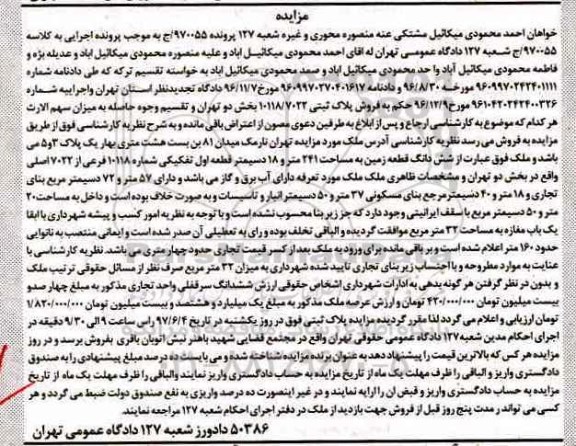 مزایده
خواهان احمد محمودی میکائیل مشتکی عنه منصوره محوری و غیره شعبه ۱۲۷ پرونده ۹۷۰۰۵۵/ج به موجب پرونده اجرایی به کلاسه
۹۷۰۰۵۵/ج شعبه ۱۲۷ دادگاه عمومی تهران له اقای احمد محمودی میکائیل اباد و علیه منصوره محمودی میکائیل اباد و عدیله بژه و
فاطمه محمودی میکائیل آباد وا حد محمودی میکائیل اباد و صمد محمودی میکائیل اباد به خواسته تقسیم ترکه که طی دادنامه شماره
۹۶۰۹۹۷۰۲۴۲۴۰۱۱۱۱ مورخه ۹۶/۸/۳۰ و دادنامه ۹۶۰۹۹۷۰۲۷۰۴۰۱۶۱۷ مورخ ۹۶/۱۱/۷ دادگاه تجدیدنظر استان تهران واجراییه شماره
۹۶۱۰۴۲۰۲۴۲۴۰۰۳۲۶ مورخ ۹۶/۱۲/۹ حکم به فروش پلاک ثبتی ۱۰۱۱۸/۷۰۲۲ بخش دو تهران و تقسیم وجوه حاصله به میزان سهم الارث
هر کدام که موضوع به کارشناسی ارجاع و پس از ابلاغ به طرفین دعوی مصون از اعتراض باقی مانده و به شرح نظریه کارشناسی فوق از طریق
مزایده به فروش می رسد نظریه کارشناسی آدرس ملک مورد مزایده تهران نارمک میدان ۸۱ بن بست هشت متری بهار یک پلاک ۳و۵ می
باشد و ملک فوق عبارت از شش دانگ قطعه زمین به مساحت ۲۴۱ متر و ۱۸ دسیمتر قطعه اول تفکیکی شماره ۱۰۱۱۸ فرعی از ۷۰۲۲ اصلی
واقع در بخش دو تهران و مشخصات ظاهری ملک ملک مورد تعرفه دارای آب برق و گاز می باشد و دارای ۵۷ متر و ۷۲ دسیمتر مربع بنای
تجاری و ۱۸ متر و ۴۰ دسیمترمرجع بنای مسکونی ۳۷ متر و ۵۰ دسیمتر انبار و تاسیسات و به صورت خلاف بوده است و داخل به مساحت۲۰
متر و ۵۰ دسیمتر مربع با سقف ایرانیتی وجود دارد که جز زیر بنا محسوب نشده است و با توجه به نظریه امور کسب و پیشه شهرداری با ابقا
یک باب مغازه به مساحت ۳۲ متر مربع موافقت گردیده و الباقی تخلف بوده و رای به تعطیلی آن صدر شده است وایمانی منتصب به نانوایی
حدود ۱۶۰ متر اعلام شده است و بر باقی مانده برای ورود به ملک بعد از کسر قیمت تجاری حدود چهار متری می باشد. نظریه کارشناسی با
عنایت به موارد مطروحه و با احتساب زیر بنای تجاری تایید شده شهرداری به میزان ۳۲ متر مربع صرف نظر از مسائل حقوقی ترتیب ملک
و بدون در نظر گرفتن هر گونه بدهی به ادارات شهرداری اشخاص حقوقی ارزش ششدانگ سرقفلی واحد تجاری مذکور به مبلغ چهار صدو
بیست میلیون تومان ۴۲۰/۰۰۰/۰۰۰ تومان و ارزش عرصه ملک مذکور به مبلغ یک میلیارد و هشتصد و بیست میلیون تومان ۱/۸۲۰/۰۰۰/۰۰۰
تومان ارزیابی و اعلام می گردد لذا مقرر گردیده مزایده پلاک ثبتی فوق در روز یکشنبه در تاریخ ۹۷/۶/۴ راس ساعت ۹ الی ۹/۳۰ دقیقه در
اجرای احکام مدین شعبه ۱۲۷ دادگاه عمومی حقوقی تهران واقع در مجتمع قضایی شهید باهنر نبش اتوبان باقری بفروش برسد و در روز
مزایده هر کس که بالاترین قیمت را پیشنهاد دهد به عنوان برنده مزایده شناخته شده و می بایست ده درصد مبلغ پیشنهادی را به صندوق
دادگستری واریز و الباقی را ظرف مهلت یک ماه از تاریخ مزایده به حساب دادگستری واریز نمایند والباقی را ظرف مهلت یک ماه از تاریخ
مزایده به حساب دادگستری واریز و قبض ان را ارایه نمایند و در غیر اینصورت ده درصد واریزی به نفع صندوق دولت ضبط می گردد و هر
کسی می تواند ر مدت پنج روز قبل از فروش جهت بازدید از ملک در دفتر اجرای احکام شعبه ۱۲۷ مراجعه نمایند.
۵۰۳۸۶ دادورز شعبه ۱۲۷ دادگاه عمومی تهران